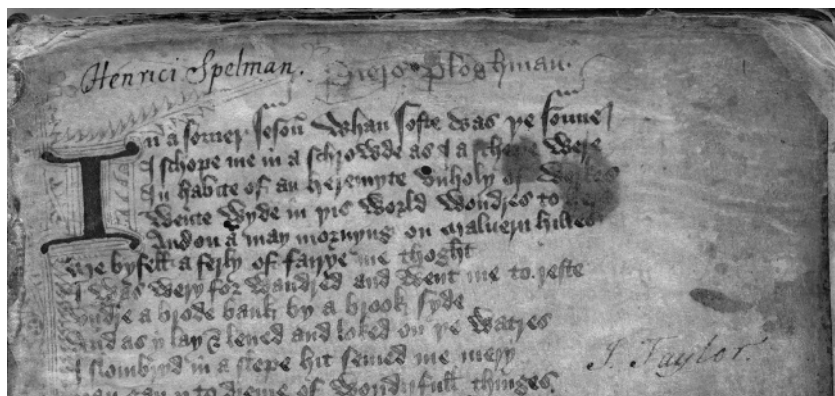 Henrici Spelman.
Piers Ploghman.
In a somer seson whan softe was þe sonne
I schope me in a schrowde as I a schepe were
In habite of an heremyte vnholy of werkes
Wente wyde in þis world wondres to
And on a may mornyng on maluern hilles
Me byfell a ferly of fairye me thoght
I was wery for wandred and went me to reste
Vndre a brode bank by a brook syde
And as y lay & lened and loked on þe watres
I slombryd in a slepe hit semed me mery
gan y to dreme of wondrfull thinges.
J. Taylor.